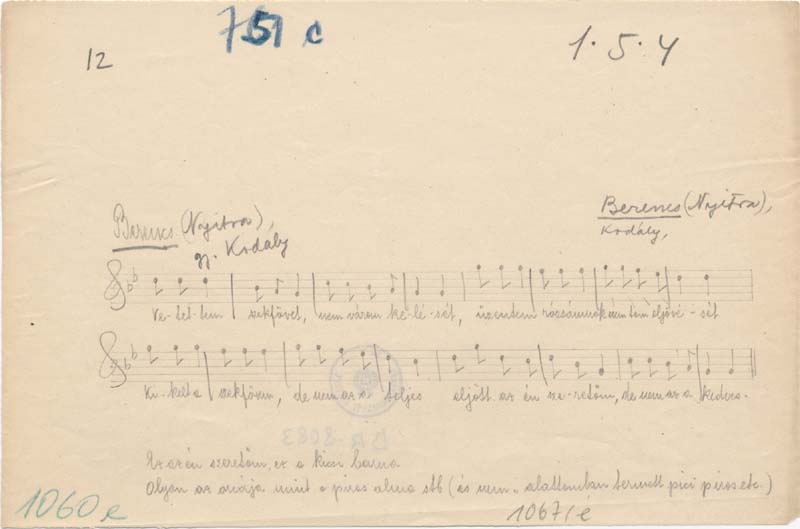 751 c
12
1. 5. 4
Berencs (Nyitra),
gy. Kodály
Berencs (Nyitra),
Kodály,
Ve-tet-tem szekfüvet, nem várom ke-lé-sét, üzentem rózsámnak nem tom eljövé-sét
Ki-kelt a szekfüvem, de nem az a teljes eljött az én sze-retőm, de nem az a kedves.
Ez az én szeretőm, ez a kicsi barna
Olyan az orcája mint a piros alma stb (és nem
termett pici piros etc.)
1060 e
1067/é